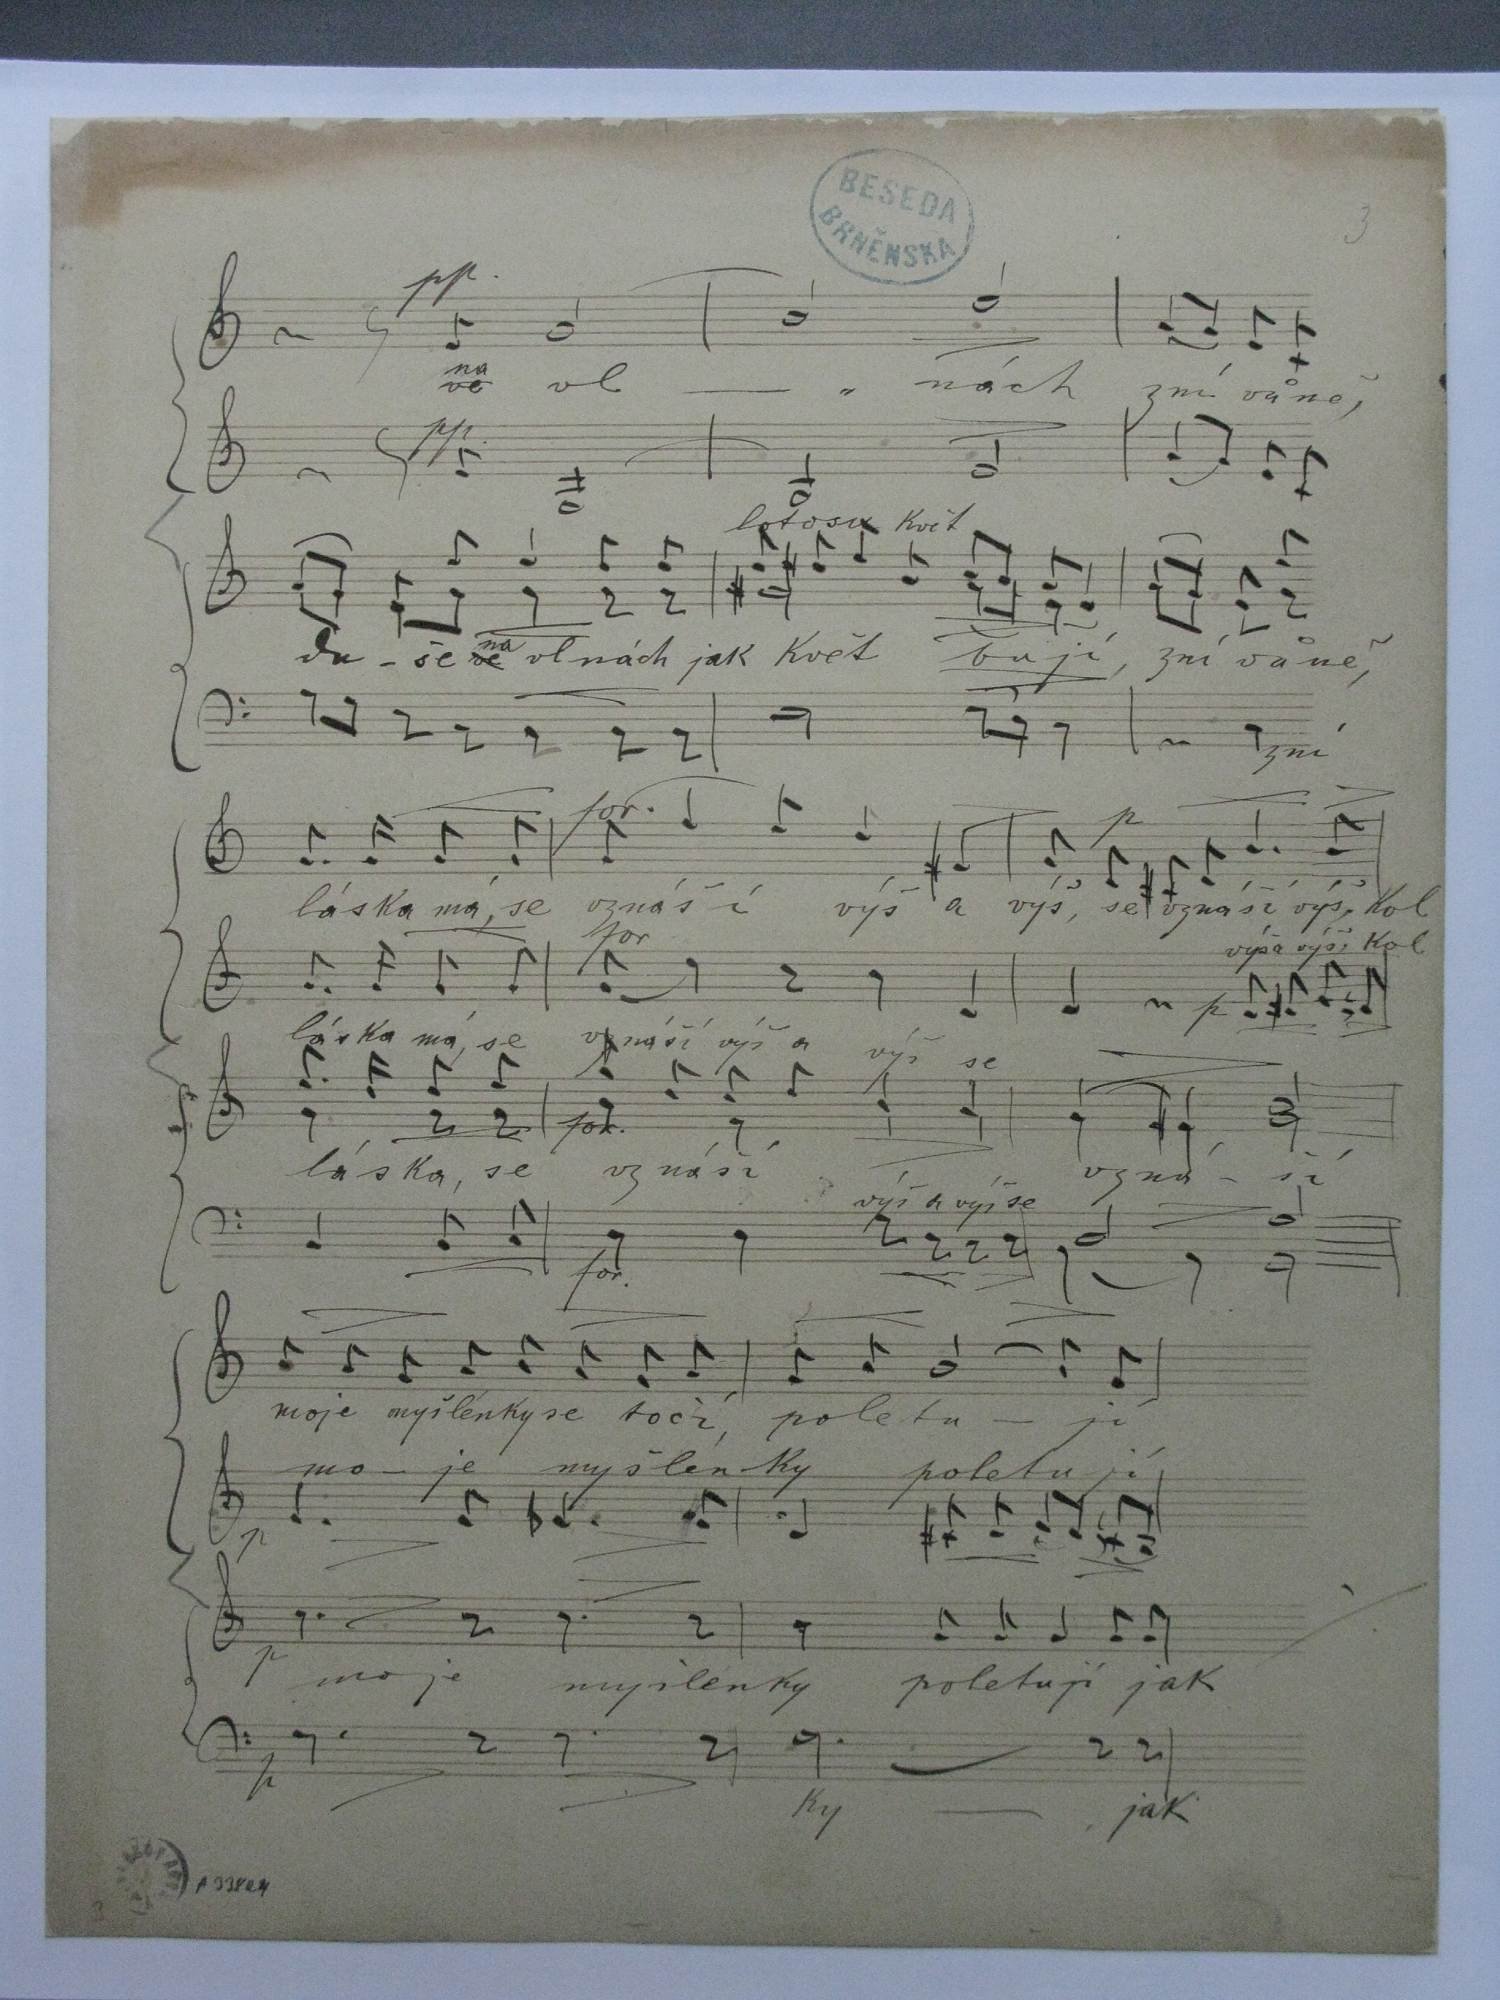 BESEDA
BRNĚNSKA
3
pp.
na
ve vl — „ nách zní vůně,
pp.
lotosu květ
Du - še na ve vlnách jak květ bují, zní vůně,
zní
for. p
láska má, se vznáší výš a výš, se vznáší výš, kol
for
výš a výši kol
p
láska má, se vznáší výš a výš se
for.
láska, se vznáší vzná - ší
výš a výš se
for.
moje myšlénky se točí, poletu — jí
mo - je myšlén - ky poletují
p
p moje myšlénky poletují jak
p
ky — jak
3